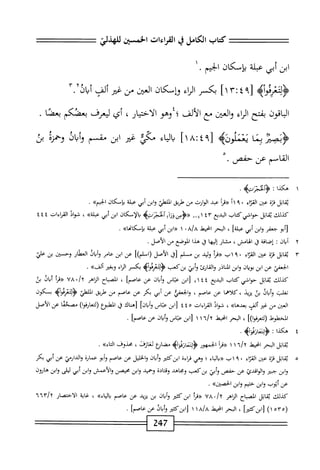 كتاب الكامل في القراءات الخمسين للهذليّ
ابن أبي عبلة بإسكان الجيم .١
﴿لِتَعْرِفُوا﴾ [١٣:٤٩] بكسر الراء وإسكان العين من غير ألفٍ أبانُ٢.
الباقون بفتح الراء والعين مع الألف ؛٤وهو الاختيار ، أي ليعرف بعضُكم بعضًا .
﴿بَصِيرٌ بِمَا يَعْمَلُونَ﴾ [١٨:٤٩] بالياء مكّيٌّ غير ابن مقسم وأبانُ وحمزةُ بنُ
القاسم عن حفص .٥
١ هكذا : ﴿الْحُجْرَاتِ﴾ .
يُقابَل قرّة عين القرّاء ١٩٠أ «قرأ عبد الوارث من طريق الملطيّ وابن أبي عبلة بإسكان الجيم» .
كذلك يُقابَل حواشي كتاب البديع ١٤٣... «﴿مِن وَرَاءِ الْحُجْرَاتِ﴾ بالإسكان ابن أبي عبلة» ، شواذّ القراءات ٤٤٤
[أبو جعفر وابن أبي عبلة] ، البحر المحيط ١٠٨/٨ «ابن أبي عبلة بإسكانها» .
٢ أبان : إضافة في الهامش ، مشار إليها في هذا الموضع من الأصل .
٣ يُقابَل قرّة عين القرّاء ١٩٠ب «قرأ وليد بن مسلم [في الأصل (اسلم)] عن ابن عامر وأبانُ العطّار وحسين بن عليّ
الجعفيّ عن ابن بويان وابن المناذر والقارئ وأبيّ بن كعب ﴿لِتَعْرِفُوا﴾ بكسر الراء وبغير ألف» .
كذلك يُقابَل حواشي كتاب البديع ١٤٤، [ابن عبّاس وأبان عن عاصم] ، المصباح الزاهر ٧٨٠/٢ «قرأ أبانُ بنُ
تغلب وأبانُ بنُ يزيد ، كلاهما عن عاصم ، والجعفيّ عن أبي بكر عن عاصم من طريق الملطيّ ﴿لِتَعْرِفُوا﴾ بسكون
العين من غير ألفٍ بعدها» ، شواذّ القراءات ٤٤٥ [ابن عبّاس وأبان] [هناك في المطبوع (لتعارفوا) مصحّفًا عن الأصل
المخطوط (لتعرفوا)] ، البحر المحيط ١١٦/٢ [ابن عبّاس وأبان عن عاصم] .
٤ هكذا : ﴿لِتَعَارَفُوا﴾ .
يُقابَل البحر المحيط ١١٦/٢ «قرأ الجمهور ﴿لِتَعَارَفُوا﴾ مضارع تَعَارَفَ ، محذوف التاء» .
٥ يُقابَل قرّة عين القرّاء ١٩٠ب «بالياء ؛ وهي قراءة ابن كثير وأبان والخليل عن عاصم وأبو عمارة والدارميّ عن أبي بكر
وابن جبير والواقديّ عن حفص وأبيّ بن كعب ومجاهد وقتادة وحميد وابن محيصن والأعمش وابن أبي ليلى وابن هارون
عن أيّوب وابن خثيم وابن الحصين» .
كذلك يُقابَل المصباح الزاهر ٧٨٠/٢ «قرأ ابن كثير وأبان بن يزيد عن عاصم بالياء» ، غاية الاختصار ٦٦٣/٢
(١٥٣٥) [ابن كثير] ، البحر المحيط ١١٨/٨ [ابن كثير وأبانُ عن عاصم] .
247